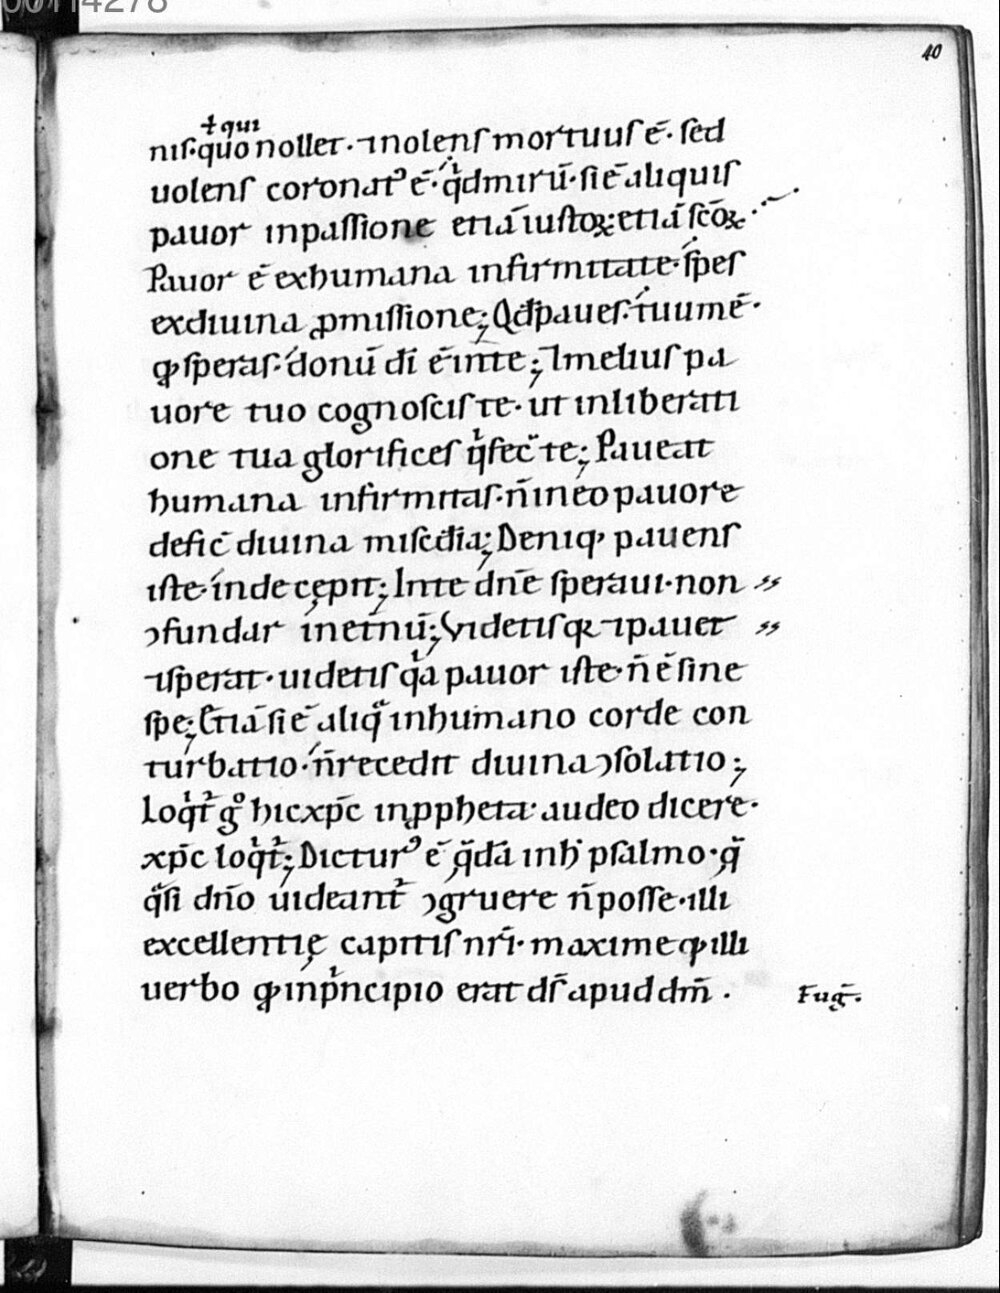 40
ł qui
nis·quo nollet·⁊nolens mortuus ē·sed
uolens coronat᷒ ē·qͥd mirū·si ē aliquis
pauor in passione etiā iustoꝝ·etiā scōꝝ·
Pauor ē ex humana infirmitate·spes
ex diuina ꝓmissione; Qđ paues·tuum ē·
qđ speras·donū dī ē in te; ⁊melius pa
uore tuo cognoscis te·ut in liberati
one tua glorifices qͥ fec̄ te; Paueat
humana infirmitas·n̄ in eo pauore
defic̄ diuina misc̄đia; Deniqꝫ pauens
iste·inde cępit; In te dn̄e speraui·non
ꝯfundar in et̄nū; Videtis qꝛ ⁊pauet
⁊sperat·uidetis qͥa pauor iste·n̄ ē sine
spe; Etiā si ē aliqͣ in humano corde con
turbatio·n̄ recedit diuina ꝯsolatio;
Loqͥt᷒ gͦ hic xp̄c in ꝓpheta·audeo dicere·
xp̄c loqͥt᷒; Dictur᷒ ē qͣdā in h᷒ psalmo·qͣ
qͣsi dn̄o uideant᷒ ꝯgruere n̄ posse·illi
excellentię capitis nr̄i·maxime qđ illi
uerbo qđ in pͥncipio erat dſ̄ apud dm̄.
Fug̅.